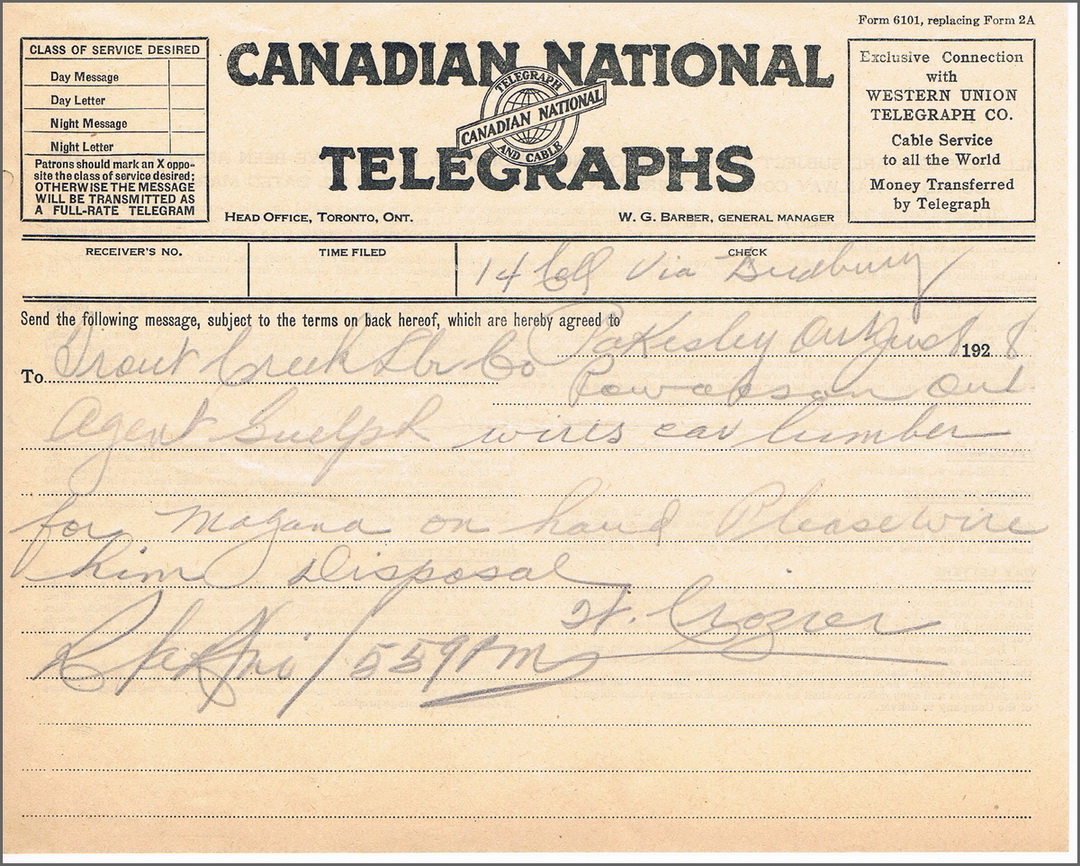 Form 6101, replacing Form 2A
CLASS OF SERVICE DESIRED
Day Message
Day Letter
Night Message
Night Letter
Patrons should mark an X oppo-
site the class of service desired;
OTHERWISE THE MESSAGE
WILL BE TRANSMITTED AS
A FULL-RATE TELEGRAM
CANADIAN NATIONAL
TELEGRAPH
CANADIAN NATIONAL
AND CABLE
TELEGRAPHS
HEAD OFFICE, TORONTO, ONT.
W. G. BARBER, GENERAL MANAGER
Exclusive Connection
with
WESTERN UNION
TELEGRAPH CO.
Cable Service
to all the World
Money Transferred
by Telegraph
RECEIVER'S NO.
TIME FILED
CHECK
14 Coll Via Sudbury
Send the following message, subject to the terms on back hereof, which are hereby agreed to
Pakesley August 8 1928
To Trout Creek Lbr Co
Ont.
Agent Guelph wires car lumber
for Magana on hand Please wire
him Disposal
Crozier
559PM